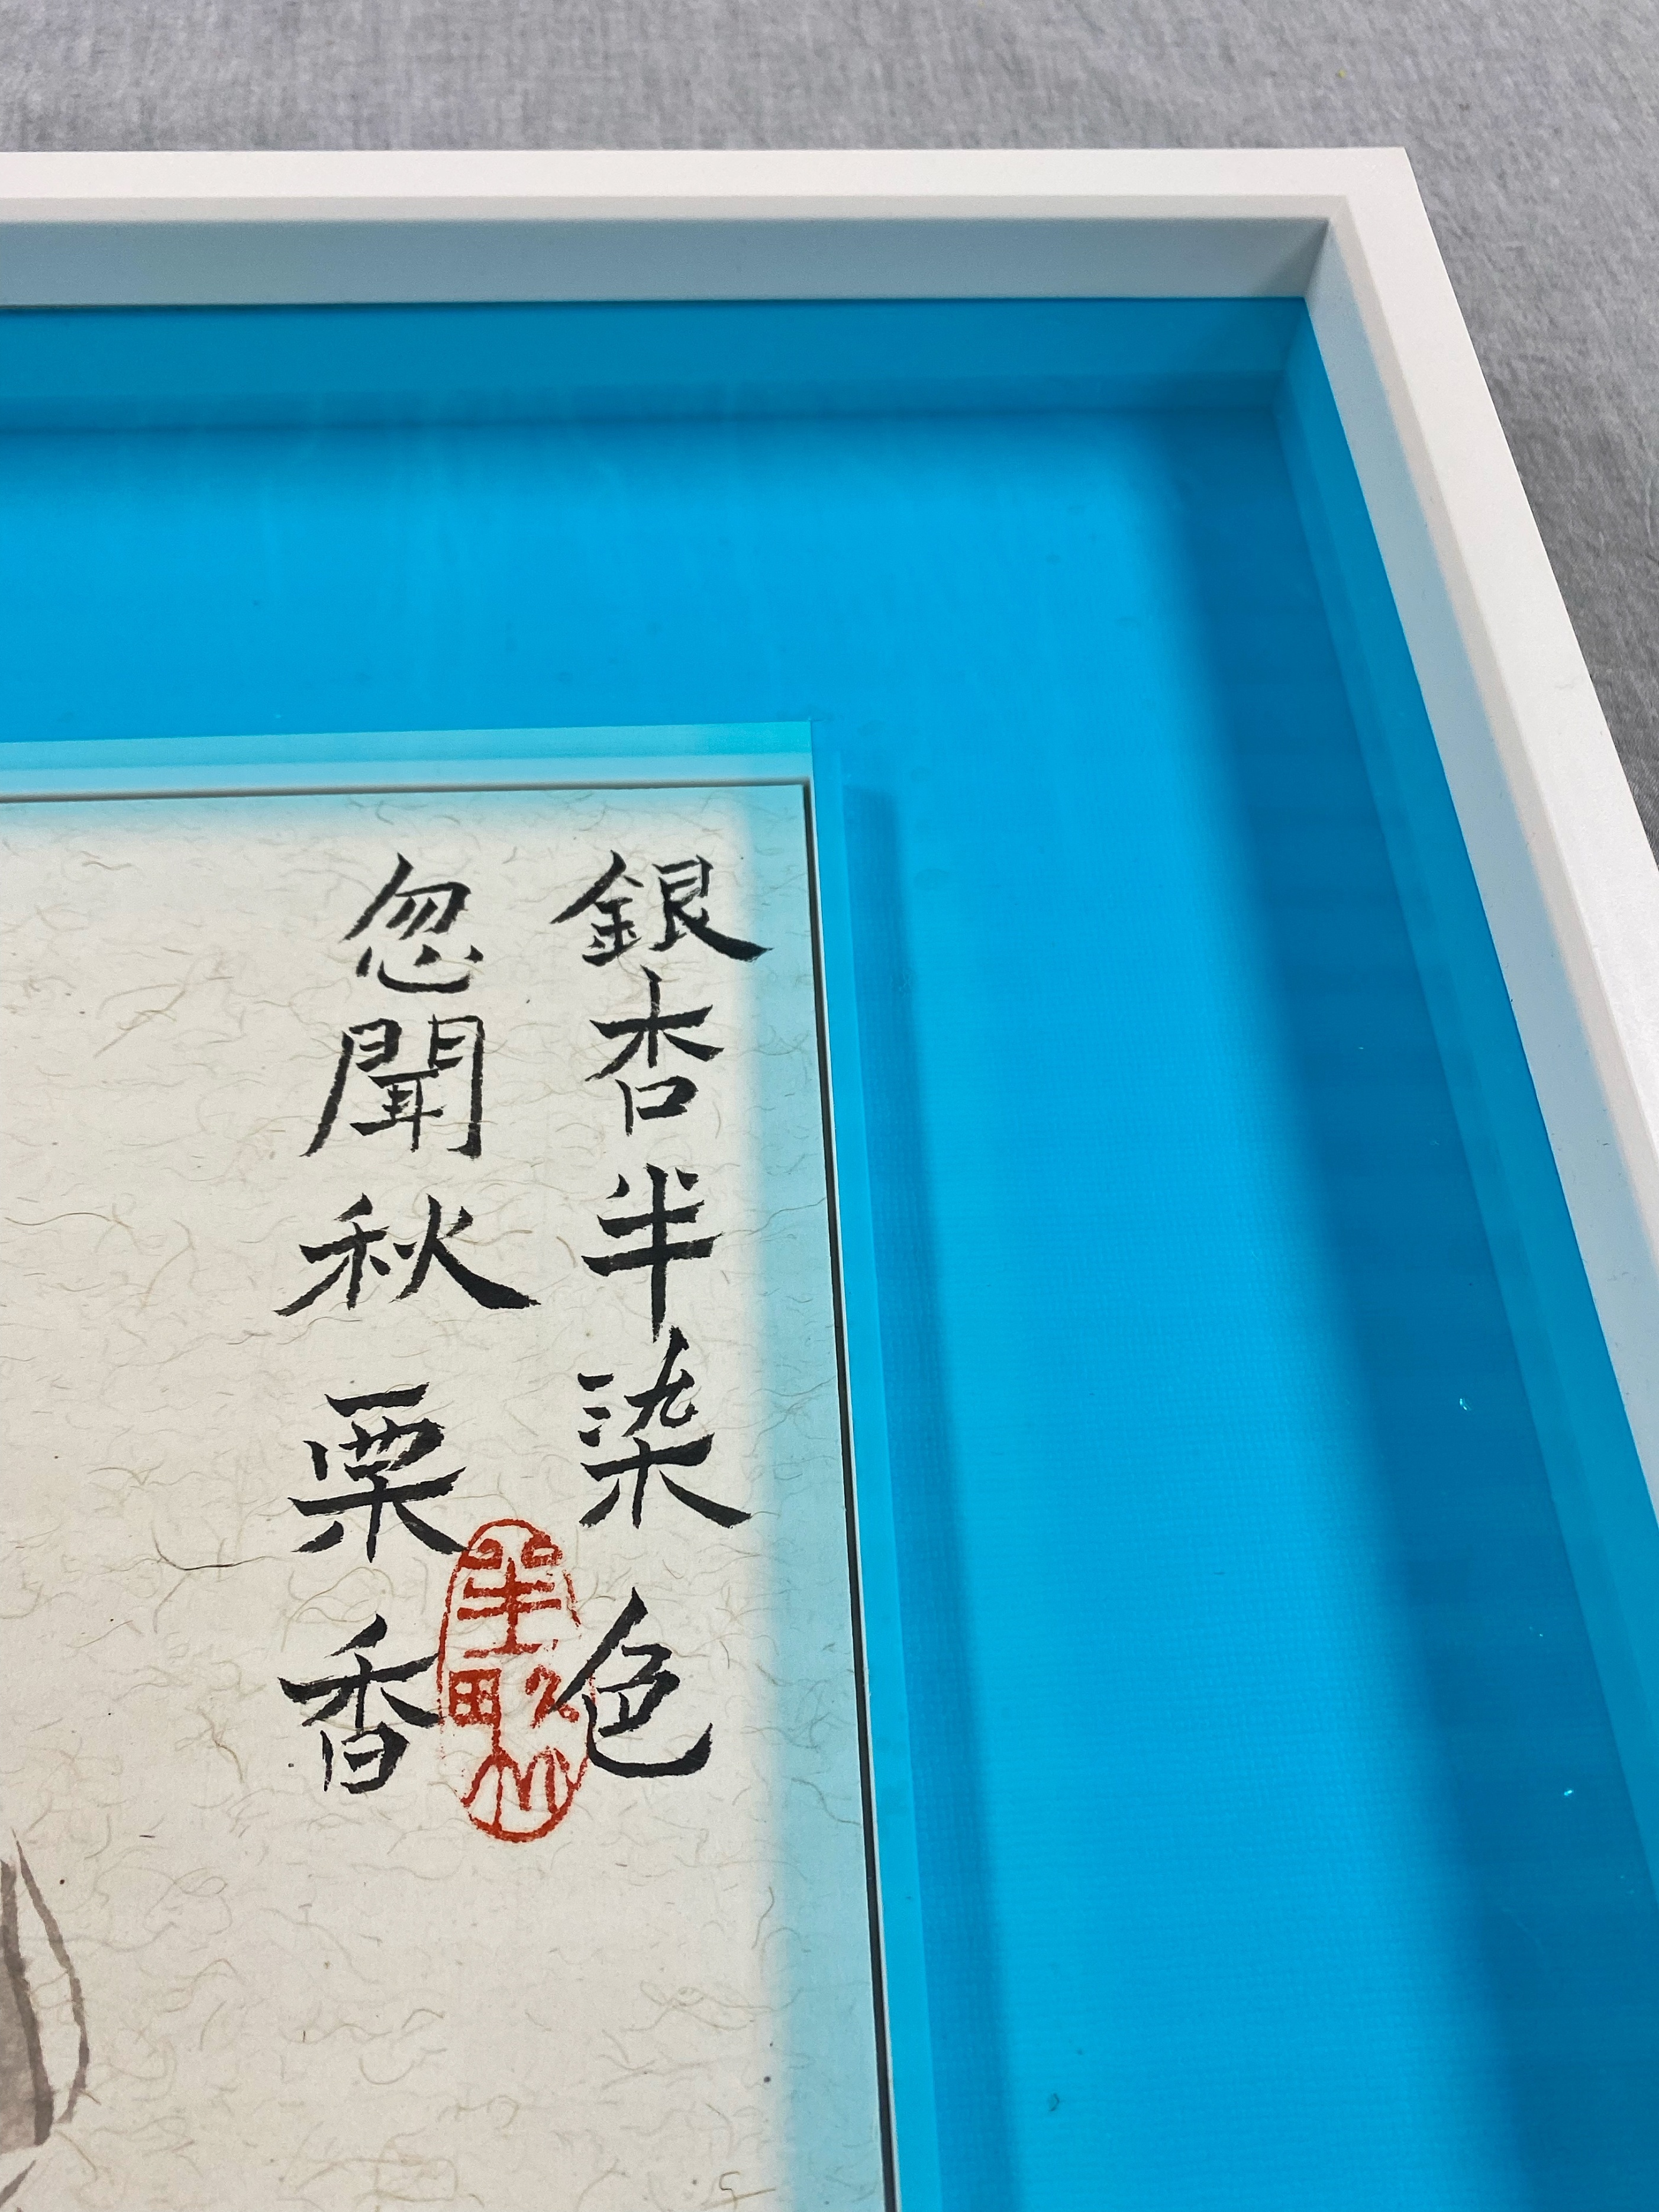 銀杏半染色
忽聞秋栗香